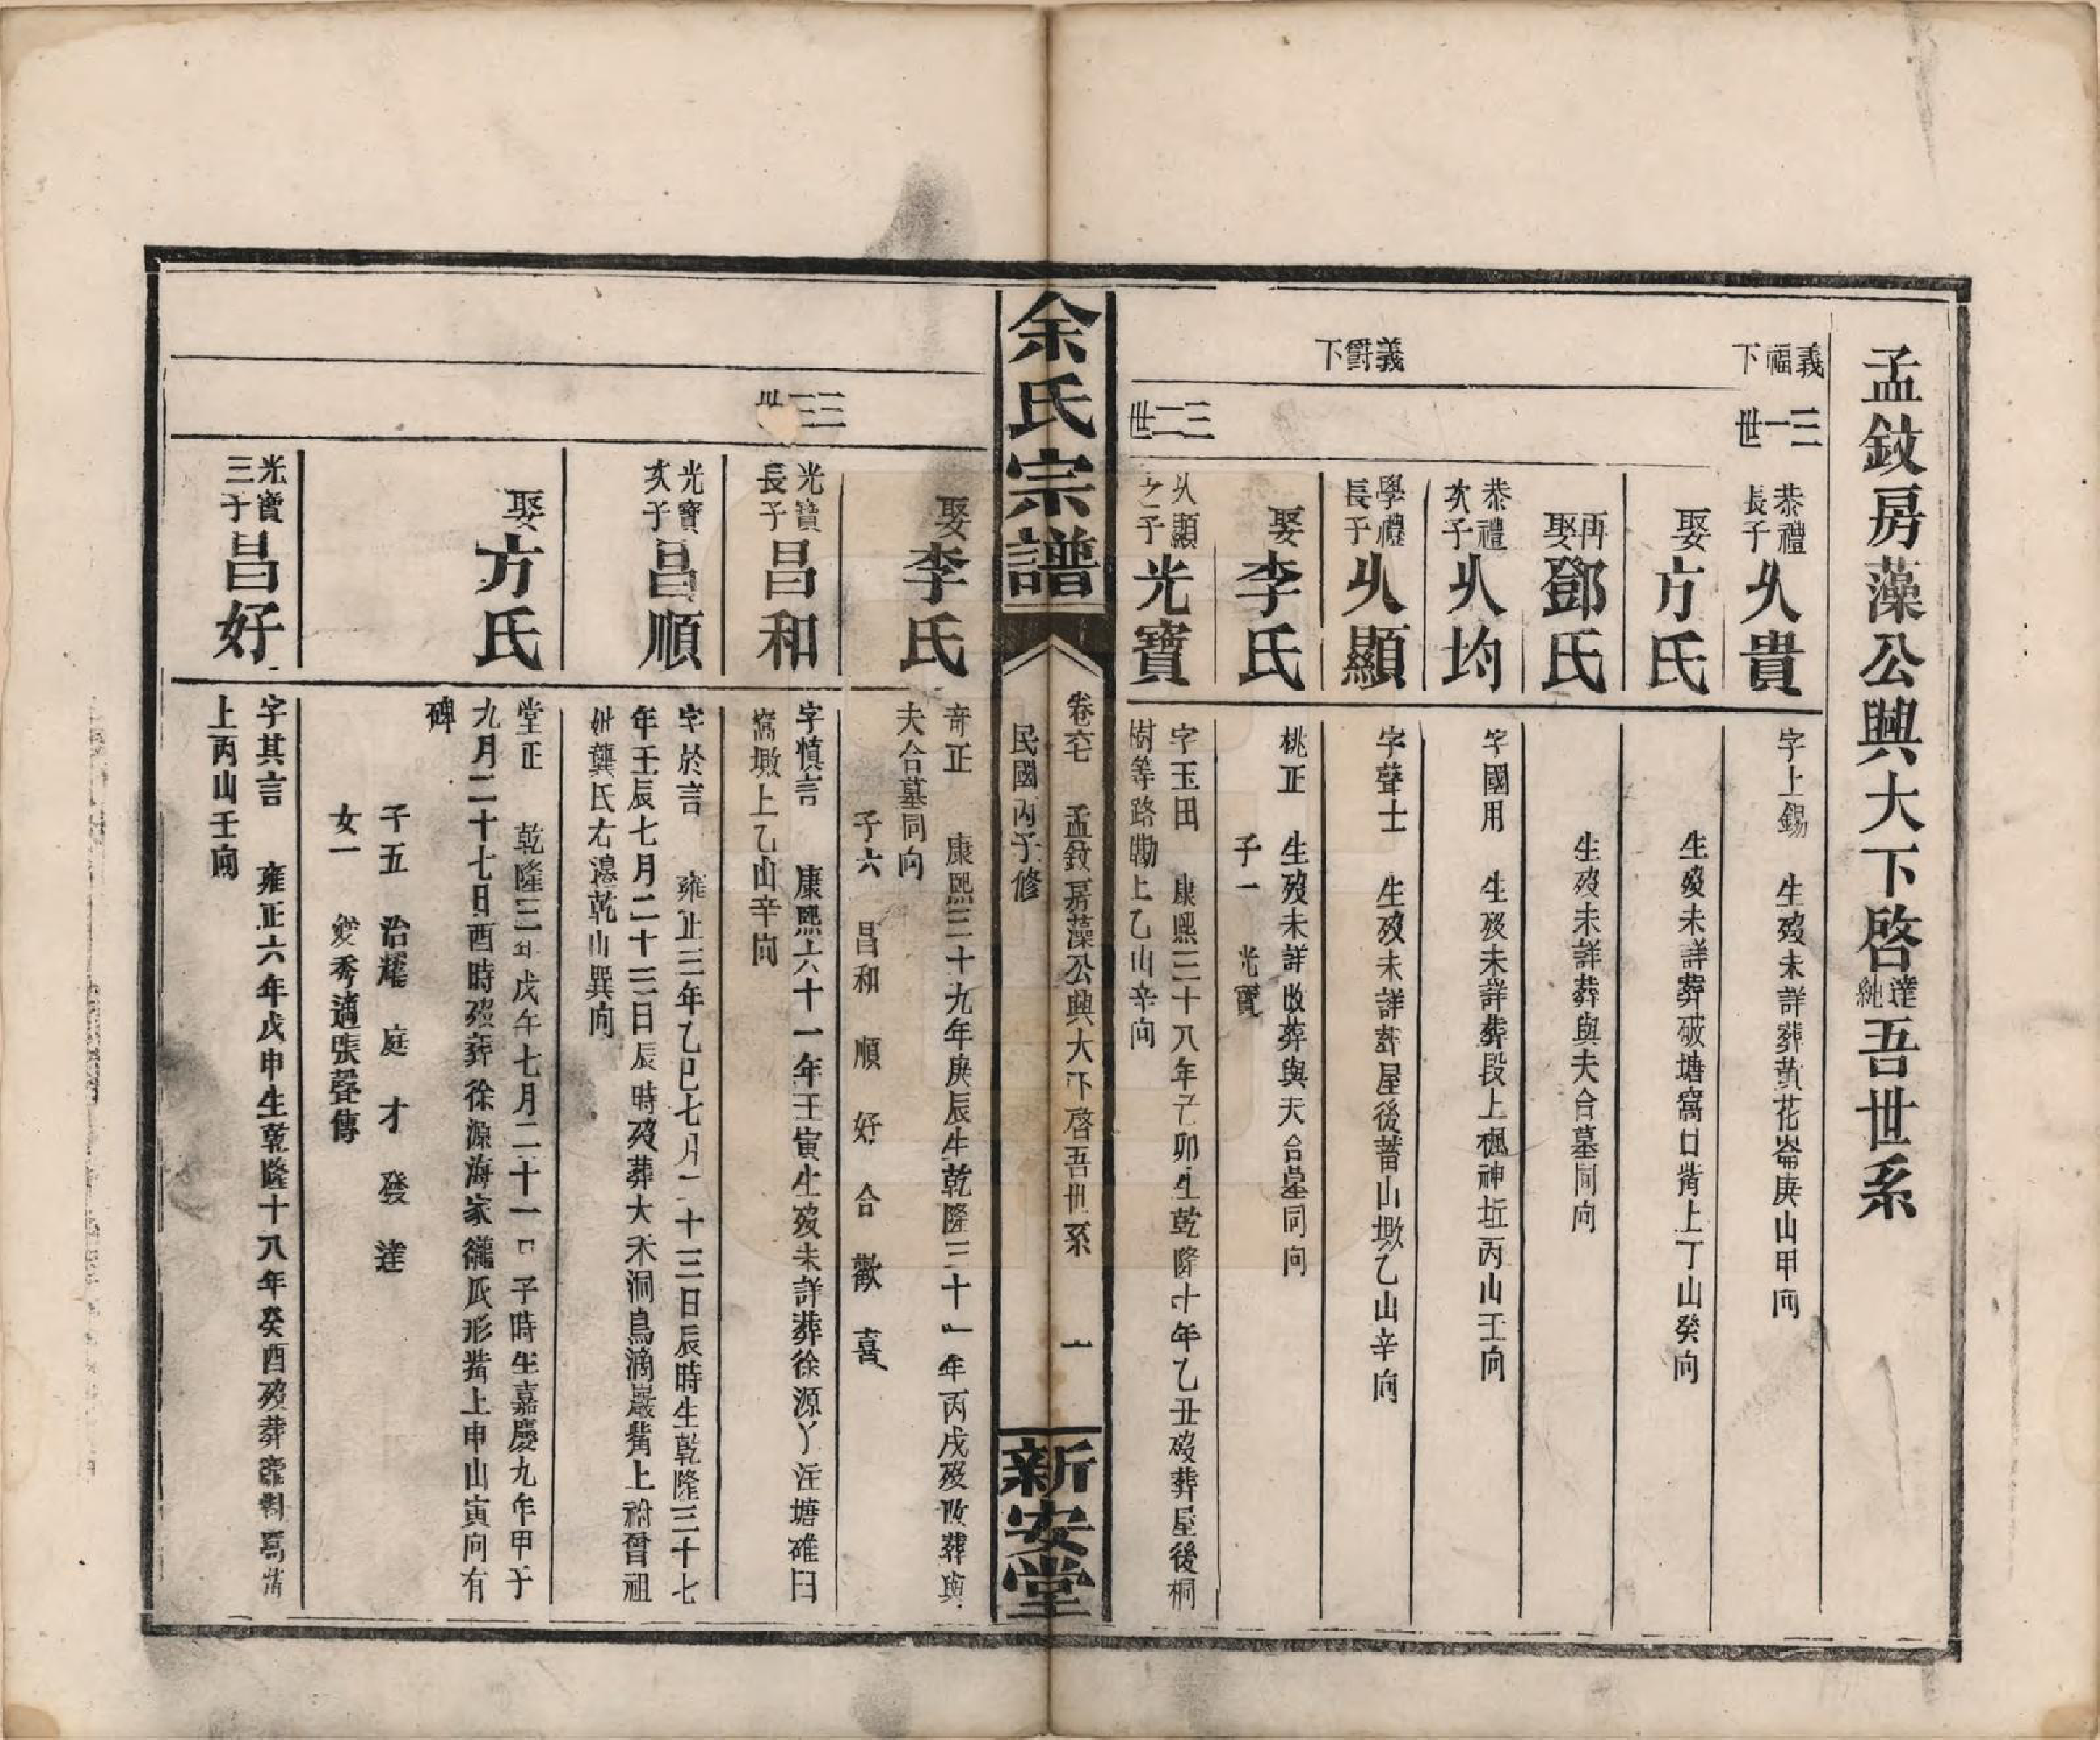 孟鈫房藻公興大下啓達純吾世系
義福下
三一世
恭禮長子乆貴
字上錫　生歿未詳葬黃花崙庚山甲向
娶方氏
生歿未詳葬破塘窩口嘴上丁山癸向
再娶鄧氏
生歿未詳葬與夫合墓同向
恭禮次子乆均
字國用　生歿未詳葬段上楓神坵丙山壬向
義爵下
學禮長子乆顯
字聲士　生歿未詳葬屋後蓄山墩乙山辛向
娶李氏
桃正　生歿未詳故葬與夫合墓同向
子一　光寶
三二世
乆顯之子光寶
字玉田　康熙三十八年己卯生乾隆十年乙丑歿葬屋後桐
樹等路坳上乙山辛向
余氏宗譜
卷六七　孟鈫房藻公興大下啓吾世系　一
民國丙子修
新安堂
娶李氏
奇正　康熙三十九年庚辰生乾隆三十一年丙戌歿故葬與
夫合墓同向
子六　昌和　順　好　合　歡　喜
三三世
光寶長子昌和
字慎言　康熙六十一年壬寅生歿未詳葬徐源丫汪塘碓臼
窩墩上乙山辛向
光寶次子昌順
字於言　雍正三年乙巳七月二十三日辰時生乾隆三十七
年壬辰七月二十三日辰時歿葬大禾洞鳥滴巖嘴上祔曾祖
妣龔氏右邊乾山巽向
娶方氏
堂正　乾隆三年戊午七月二十一日子時生嘉慶九年甲子
九月二十七日酉時歿葬徐源海家籠瓜形嘴上申山寅向有
碑
子五　治耀　庭　才　發　達
女一　愛秀適張聲傳
光寶三子昌好
字其言　雍正六年戊申生乾隆十八年癸酉歿葬窩嘴
上丙山壬向